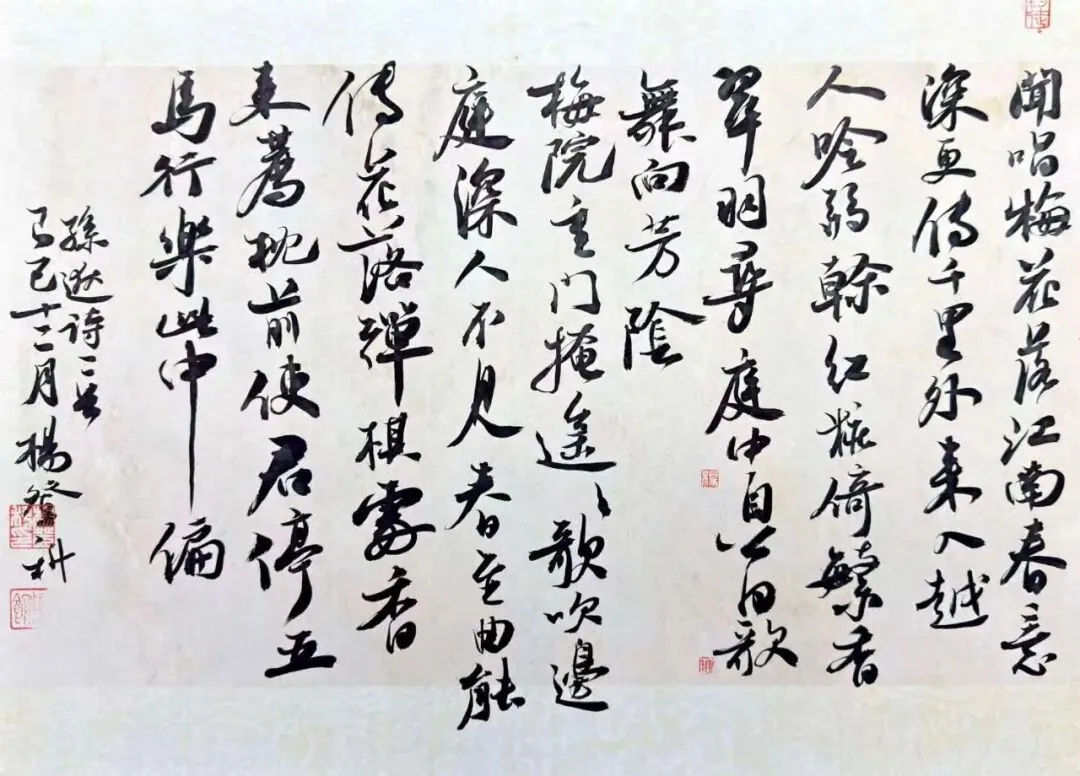 聞唱梅花落江南春意
深更傳千里外來入越
人吟弱榦紅粧倚繁香
翠羽尋庭中自公日歌
舞向芳陰
梅院重門掩遙〻歌吹邊
庭深人不見春至曲能
傳花落彈棋處香
來薦枕前使君停五
馬行樂此中偏
孫逖詩二首
乙巳十二月楊